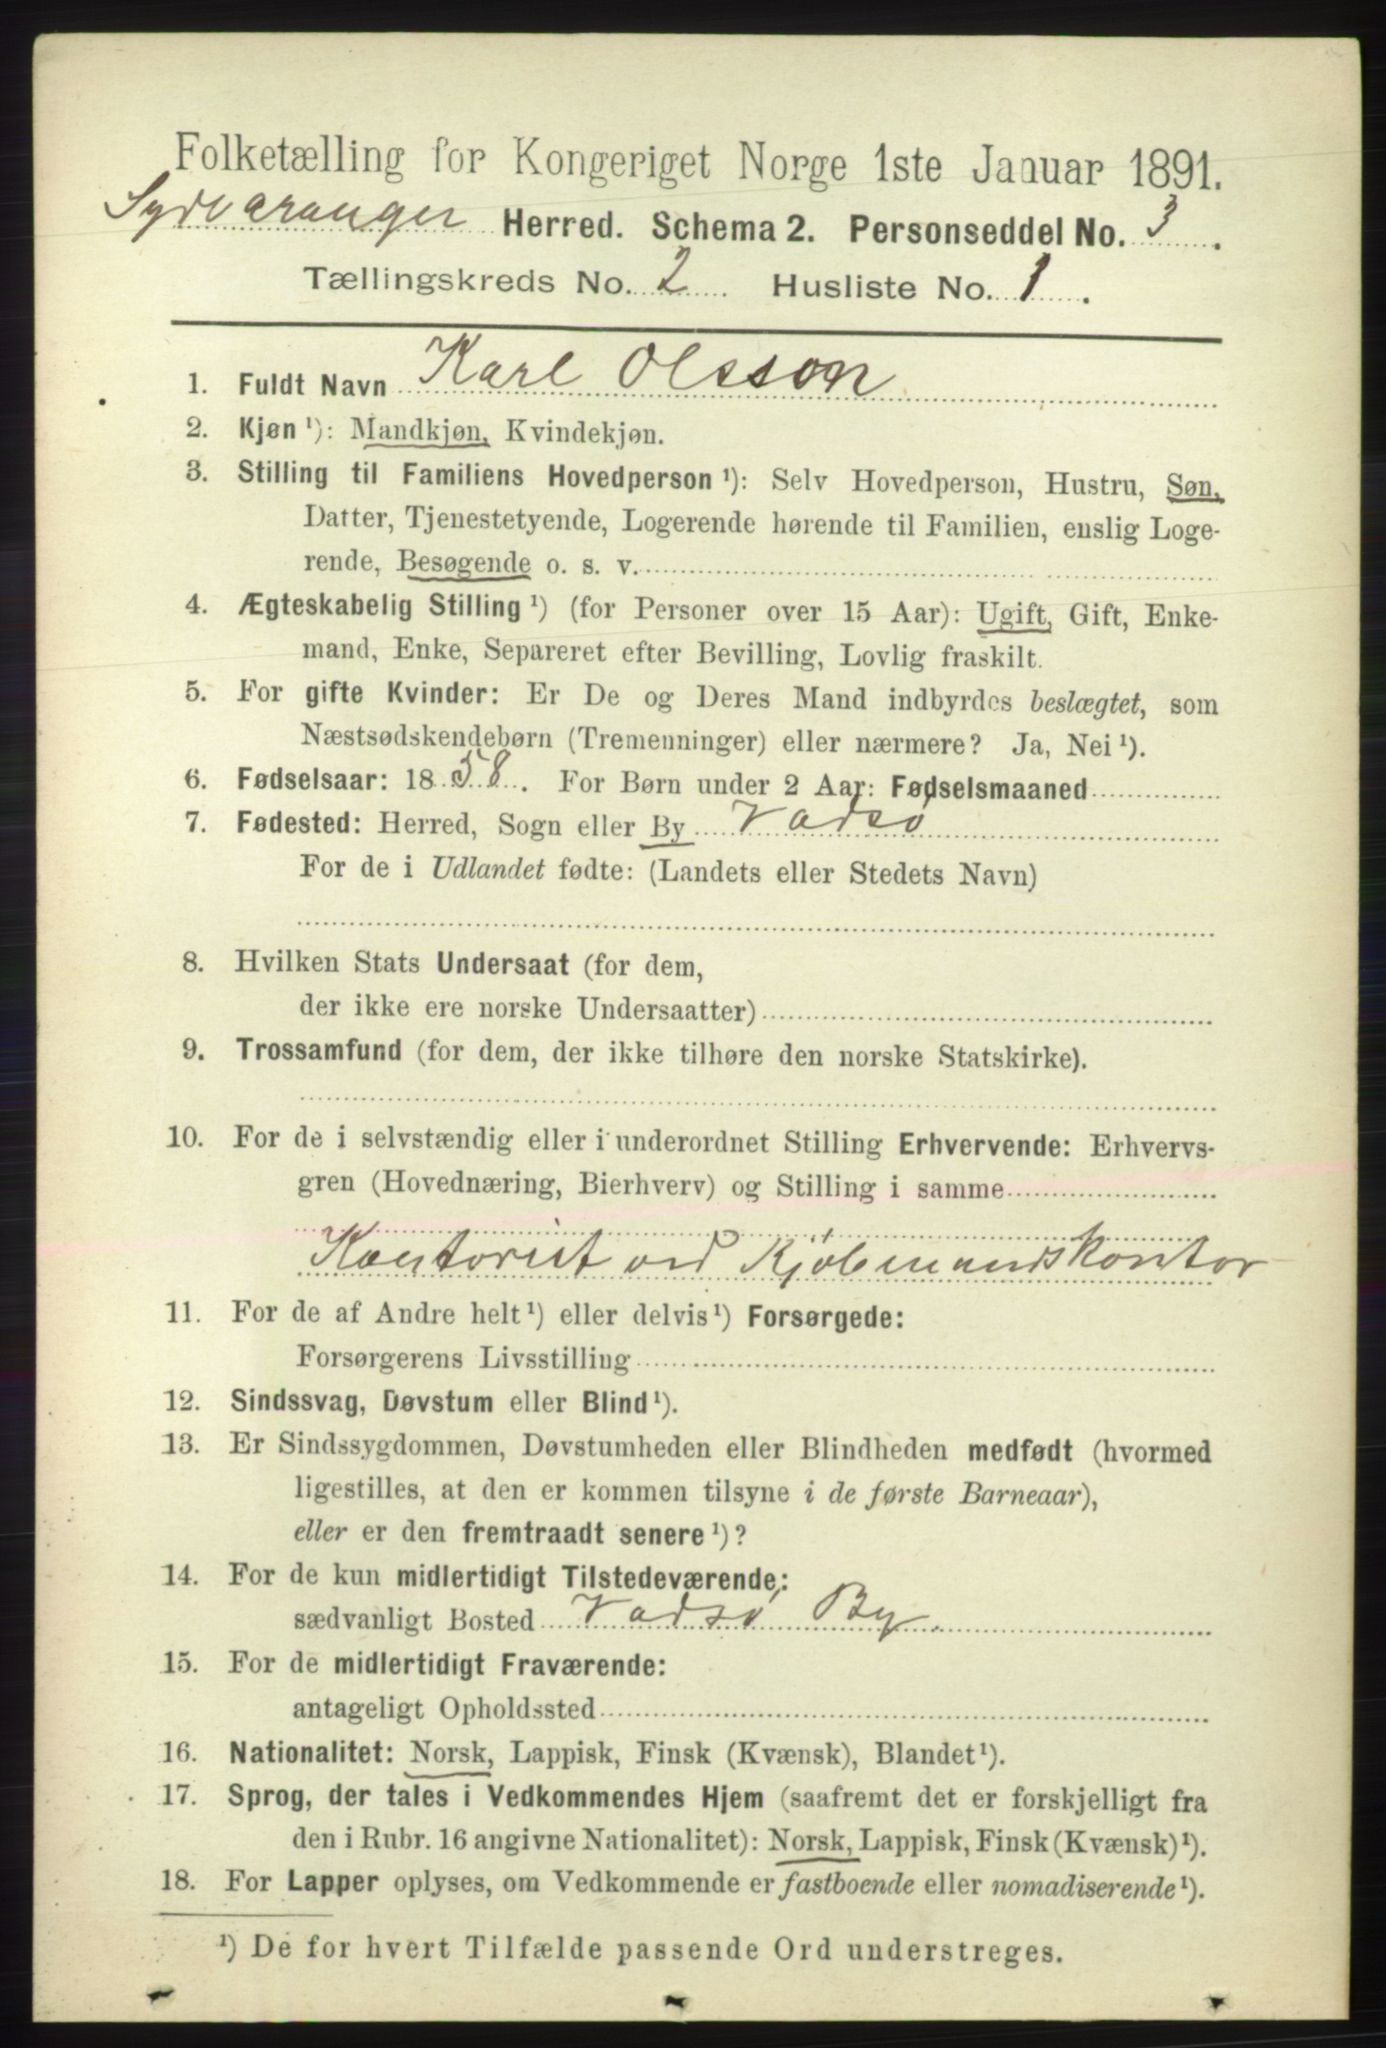 Folketælling for Kongeriget Norge 1ste Januar 1891.
Sydvaranger Herred. Schema 2. Personseddel No. 3.
Tællingskreds No. 2 Husliste No. 1.
1. Fuldt Navn Karl Olsson
2. Kjøn ¹): Mandkjøn, Kvindekjøn.
3. Stilling til Familiens Hovedperson ¹): Selv Hovedperson, Hustru, Søn,
Datter, Tjenestetyende, Logerende hørende til Familien, enslig Loge-
rende, Besøgende o. s. v.
4. Ægteskabelig Stilling ¹) (for Personer over 15 Aar): Ugift, Gift, Enke-
mand, Enke, Separeret efter Bevilling, Lovlig fraskilt.
5. For gifte Kvinder: Er De og Deres Mand indbyrdes beslægtet, som
Næstsødskendebørn (Tremenninger) eller nærmere? Ja, Nei ¹).
6. Fødselsaar: 1858. For Børn under 2 Aar: Fødselsmaaned
7. Fødested: Herred, Sogn eller By Vadsø
For de i Udlandet fødte: (Landets eller Stedets Navn)
8. Hvilken Stats Undersaat (for dem,
der ikke ere norske Undersaatter)
9. Trossamfund (for dem, der ikke tilhøre den norske Statskirke).
10. For de i selvstændig eller i underordnet Stilling Erhvervende: Erhvervs-
gren (Hovednæring, Bierhverv) og Stilling i samme
Kontorist ved Kjøbmandskontor
11. For de af Andre helt ¹) eller delvis ¹) Forsørgede:
Forsørgerens Livsstilling
12. Sindssvag, Døvstum eller Blind ¹).
13. Er Sindssygdommen, Døvstumheden eller Blindheden medfødt (hvormed
ligestilles, at den er kommen tilsyne i de første Barneaar),
eller er den fremtraadt senere ¹)?
14. For de kun midlertidigt Tilstedeværende:
sædvanligt Bosted Vadsø By.
15. For de midlertidigt Fraværende:
antageligt Opholdssted
16. Nationalitet: Norsk, Lappisk, Finsk (Kvænsk), Blandet ¹).
17. Sprog, der tales i Vedkommendes Hjem (saafremt det er forskjelligt fra
den i Rubr. 16 angivne Nationalitet): Norsk, Lappisk, Finsk (Kvænsk) ¹).
18. For Lapper oplyses, om Vedkommende er fastboende eller nomadiserende ¹).
¹) De for hvert Tilfælde passende Ord understreges.